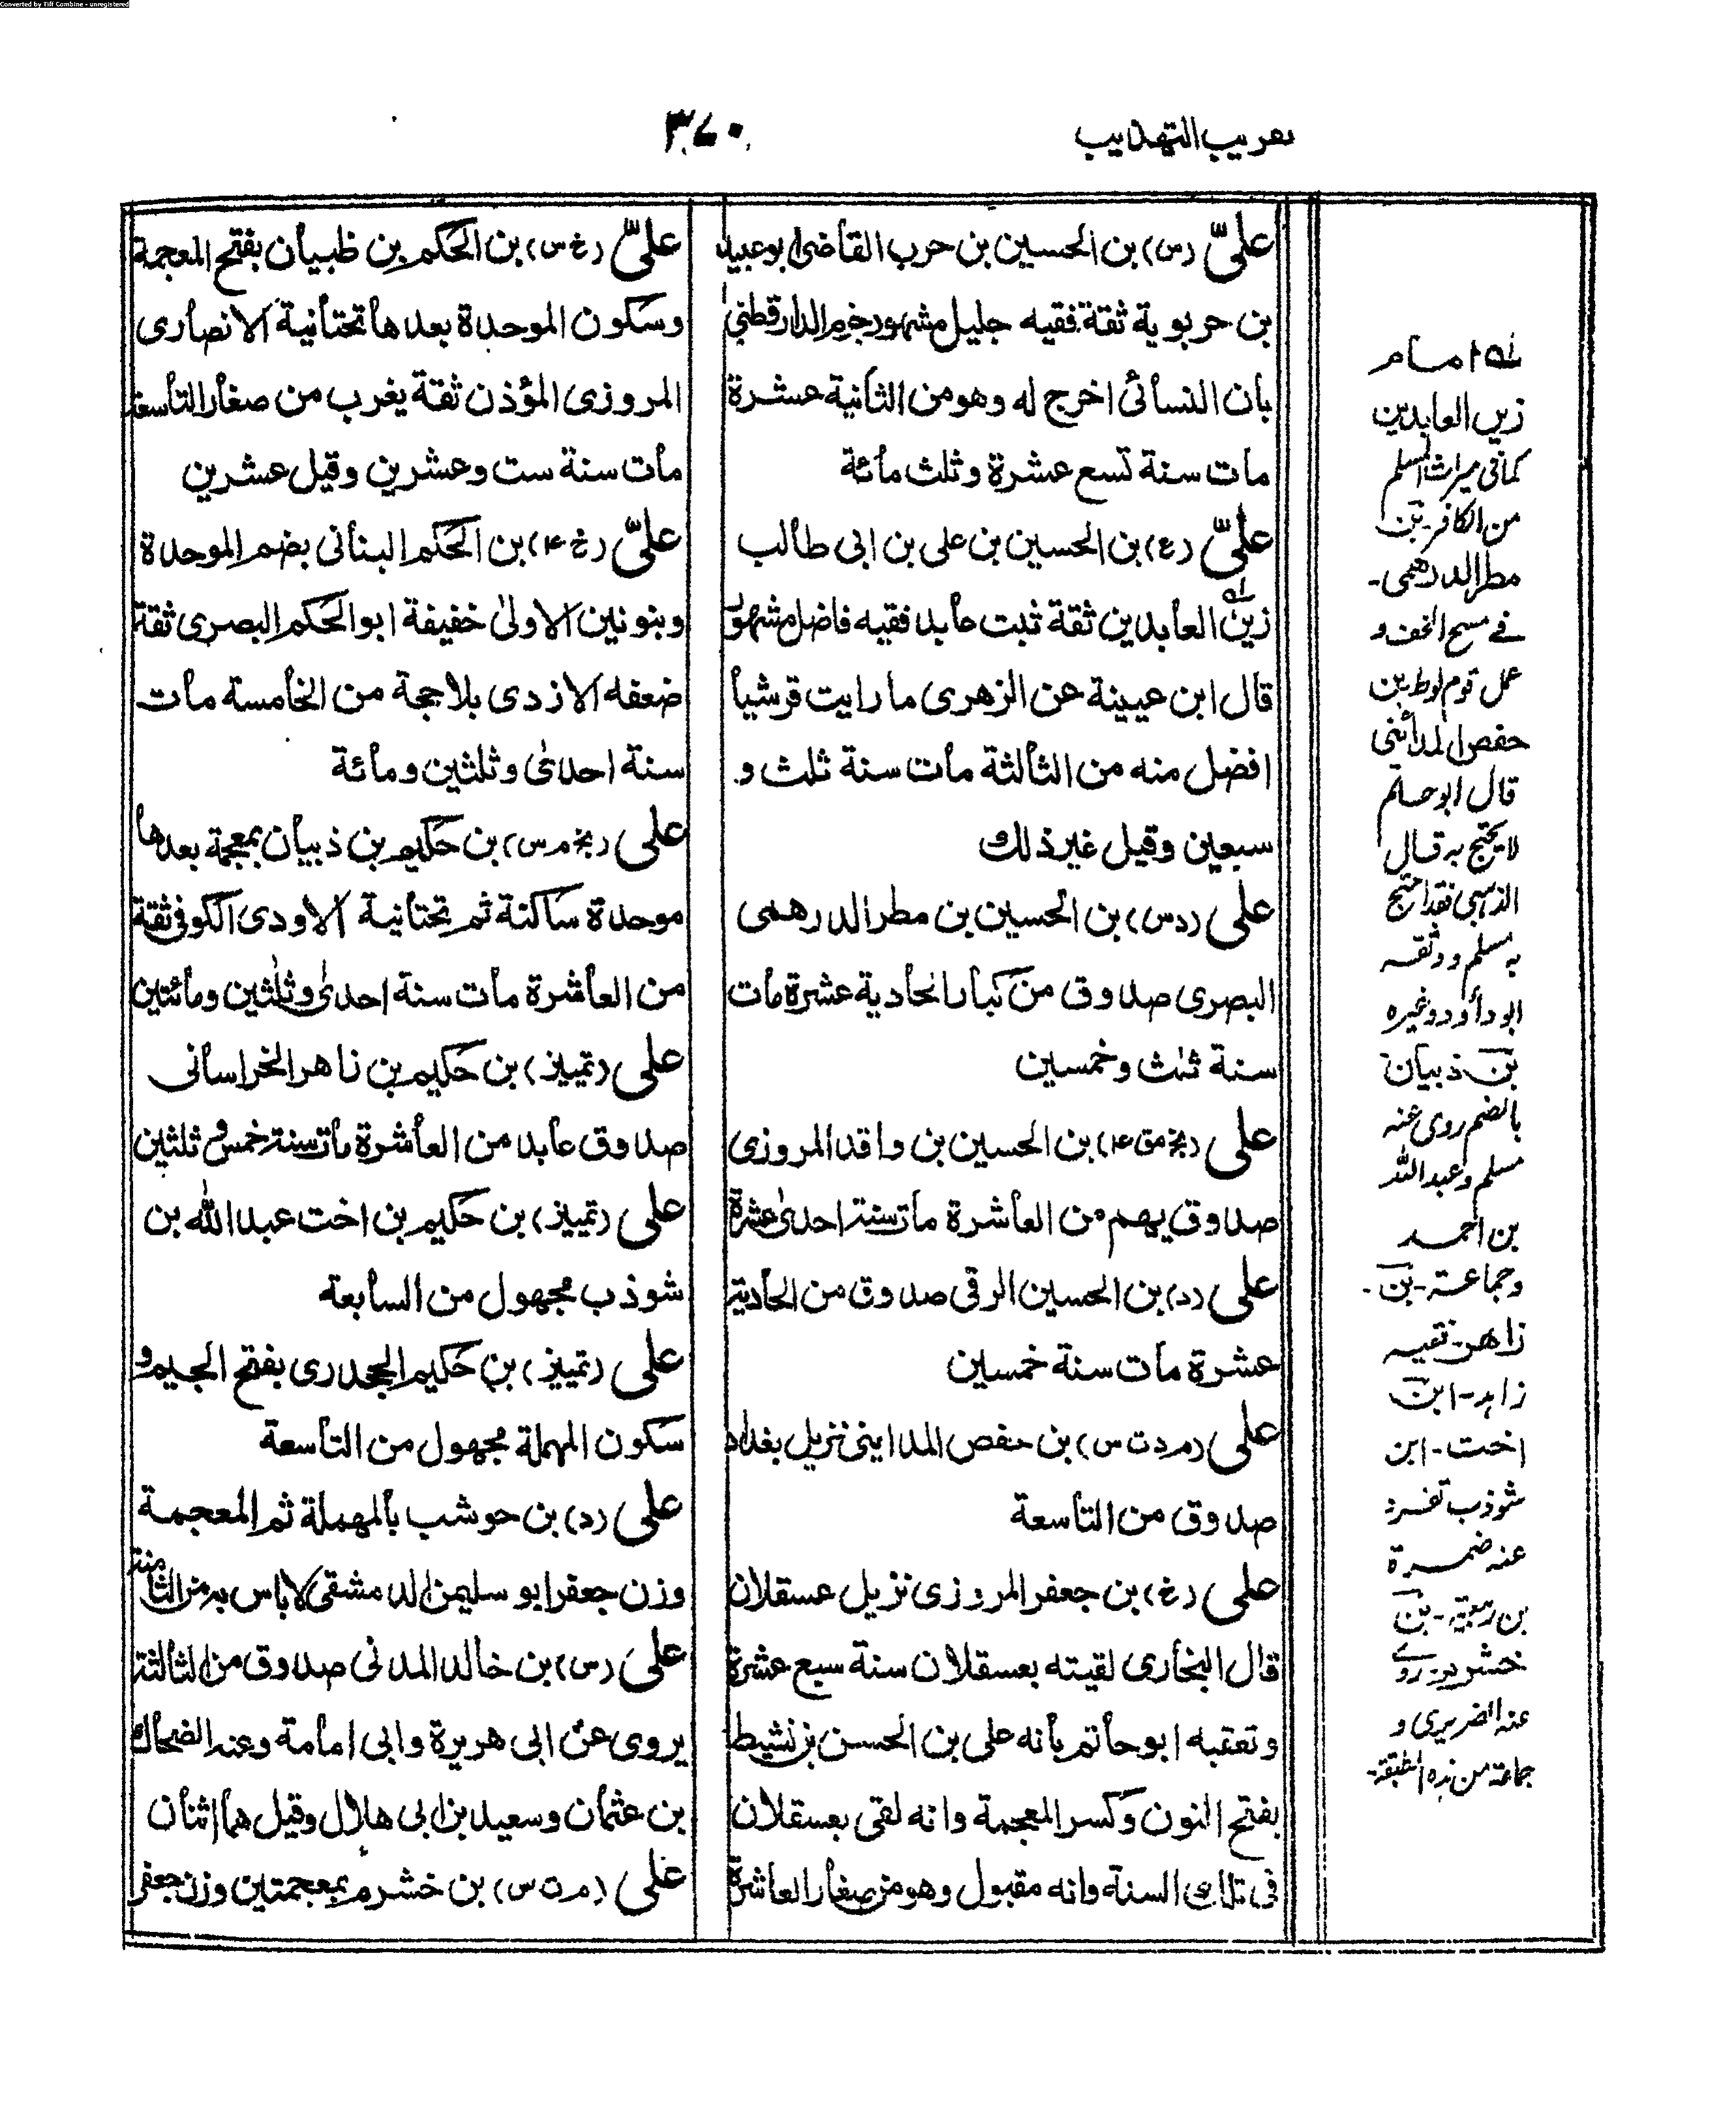 Converted by Tiff Combine - unregistered
تقريب التهذيب
٣٧٠
علىّ (س) بن الحسين بن حرب القاضى ابو عبيد
بن حربوية ثقة فقيه جليل مشهور جزم الدارقطنى
بان النسائى اخرج له وهو من الثانية عشرة
مات سنة تسع عشرة وثلث مائة
علىّ (ع) بن الحسين بن على بن ابى طالب
زين العابدين ثقة ثبت عابد فقيه فاضل مشهور
قال ابن عيينة عن الزهرى ما رايت قرشيا
افضل منه من الثالثة مات سنة ثلث و
سبعين وقيل غير ذلك
على (د س) بن الحسين بن مطر الدرهمى
البصرى صدوق من كبار الحادية عشرة مات
سنة ثلث وخمسين
على (بخ مق ۴) بن الحسين بن واقد المروزى
صدوق يهم من العاشرة مات سنة احدى عشرة
على (د) بن الحسين الرقى صدوق من الحادية
عشرة مات سنة خمسين
على (م د ت س) بن حفص المداينى نزيل بغداد
صدوق من التاسعة
على (خ) بن جعفر المروزى نزيل عسقلان
قال البخارى لقيته بعسقلان سنة سبع عشرة
وتعقبه ابو حاتم بانه على بن الحسن بن نشيط
بفتح النون وكسر المعجمة وانه لقى بعسقلان
فى تلك السنة وانه مقبول وهو من صغار العاشرة
علىّ (خ س) بن الحكم بن ظبيان بفتح المعجمة
وسكون الموحدة بعدها تحتانية الانصارى
المروزى المؤذن ثقة يغرب من صغار التاسعة
مات سنة ست وعشرين وقيل عشرين
علىّ (خ ۴) بن الحكم البنانى بضم الموحدة
وبنونين الاولى خفيفة ابو الحكم البصرى ثقة
ضعفه الازدى بلا حجة من الخامسة مات
سنة احدى وثلثين ومائة
على (بخ م س) بن حكيم بن ذبيان بمعجمة بعدها
موحدة ساكنة ثم تحتانية الاودى الكوفى ثقة
من العاشرة مات سنة احدى وثلثين ومائتين
على (تمييز) بن حكيم بن زاهر الخراسانى
صدوق عابد من العاشرة مات سنة خمس وثلثين
على (تمييز) بن حكيم بن اخت عبد الله بن
شوذب مجهول من السابعة
على (تمييز) بن حكيم الجحدرى بفتح الجيم و
سكون المهملة مجهول من التاسعة
على (د) بن حوشب بالمهملة ثم المعجمة
وزن جعفر ابو سليمن الدمشقى لا باس به من الثامنة
على (س) بن خالد المدنى صدوق من الثالثة
يروى عن ابى هريرة وابى امامة وعنه الضحاك
بن عثمان وسعيد بن ابى هلال وقيل هما اثنان
على (م ت س) بن خشرم بمعجمتين وزن جعفر
له امام
زين العابدين
كما فى ميراث المسلم
من الكافر - بن
مطر الدرهمى -
فے مسح الخف و
عمل قوم لوط بن
حفص المدائنى
قال ابو حاتم
لا يحتج به قال
الذهبى فقد احتج
به مسلم ووثقه
ابو داؤد وغيره
بن ذبيان
بالضم روى عنه
مسلم وعبد الله
بن احمد
وجماعة - بن -
زاهر - فقيه
زاهد - ابن
اخت - ابن
شوذب تفرد
عنه ضمرة
بن ربيعة - بن
خشرم روے
عنه الضريرى و
جماعة من هذه الطبقة -